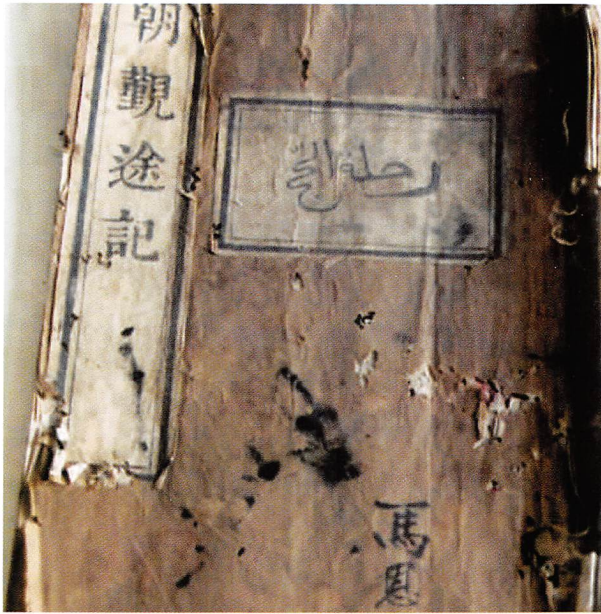 朝覲途記
رحلة الحج
馬恩